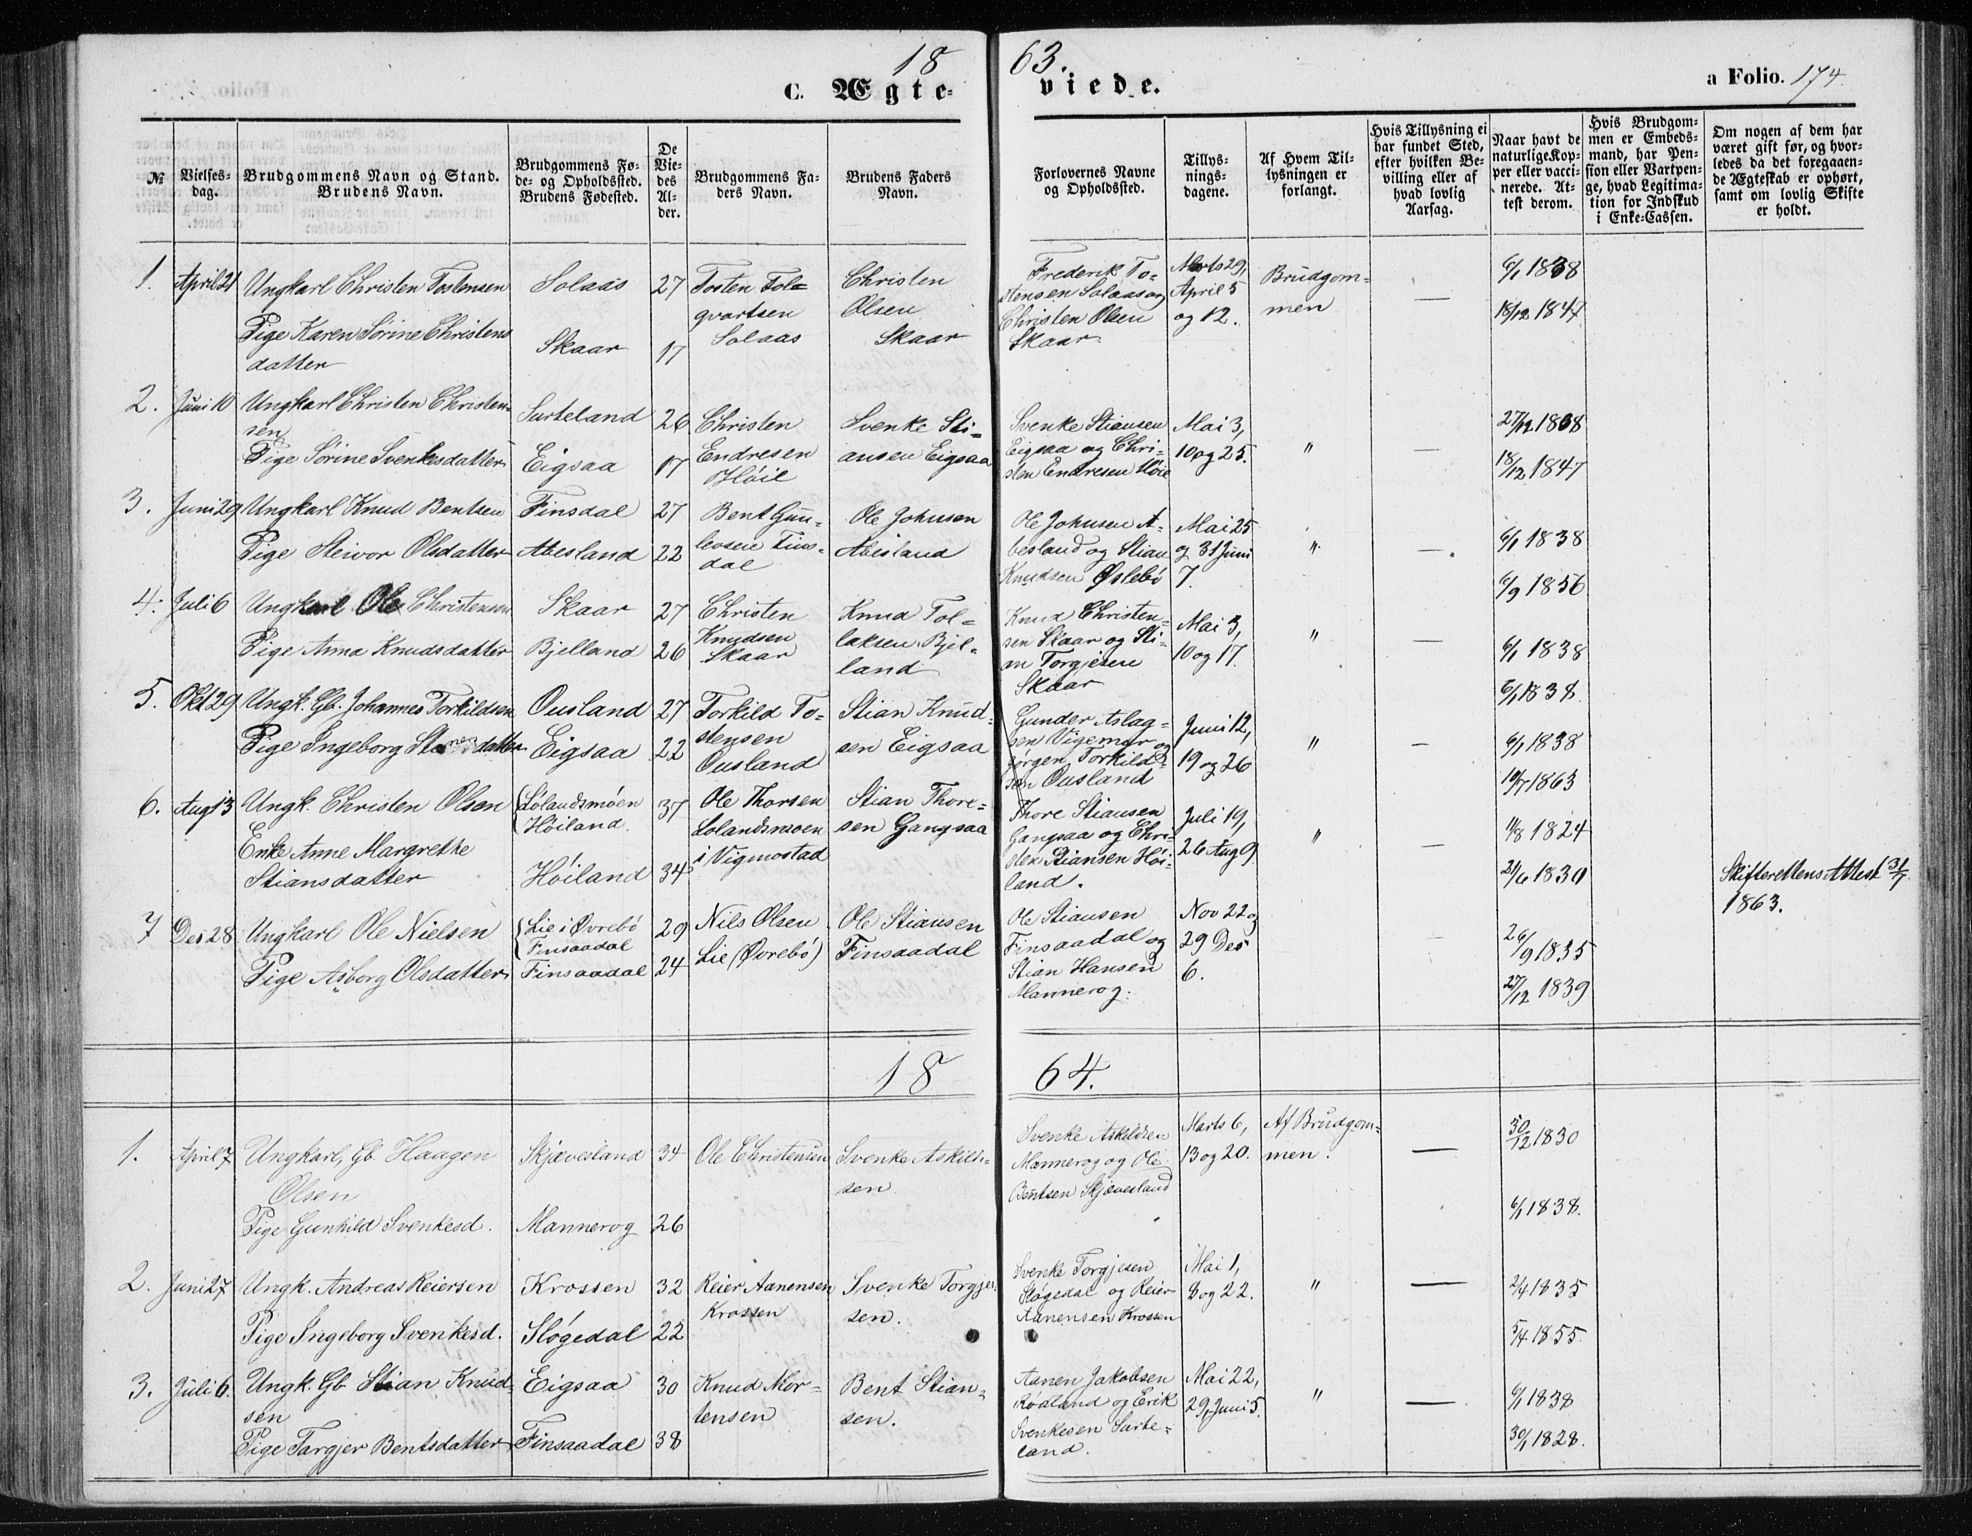 18 63.
C. Ægte- viede. a Folio. 174.
№
Vielses-
dag.
Brudgommens Navn og Stand.
Brudens Navn.
Brudgommens Fø-
de- og Opholdssted.
Brudens Fødested.
De
Vie-
des
Al-
der.
Brudgommens Fa-
ders Navn.
Brudens Faders
Navn.
Forlovernes Navne
og Opholdssted.
Tillys-
nings-
dagene.
Af Hvem Til-
lysningen er
forlangt.
Hvis Tillysning ei
har fundet Sted,
efter hvilken Be-
villing eller af
hvad lovlig
Aarsag.
Naar havt de
naturlige Kop-
per eller vacci-
nerede. At-
test derom.
Hvis Brudgom-
men er Embeds-
mand, har Pen-
sion eller Vartpen-
ge, hvad Legitima-
tion for Indskud
i Enke-Cassen.
Om nogen af dem har
været gift før, og hvor-
ledes da det foregaaen-
de Ægteskab er ophørt,
samt om lovlig Skifte
er holdt.
1. April 21
Ungkarl Christen Tostensen
Pige Karen Sørine Christens
datter
Solaas
Skaar
27
17
Tosten Tol-
qvartsen
Solaas
Christen
Olsen
Skaar
Frederik To-
stensen Solaas og
Christen Olsen
Skaar
Marts 29,
April 5
og 12.
Brudgom-
men
—
6/1 1838
18/12 1847
2. Juni 10
Ungkarl Christen Christen-
sen
Pige Sørine Svenkesdatter
Sarteland
Eigsaa
26
17
Christen
Endresen
Høie
Svenke Sti-
ansen Eigsaa
Svenke Stiansen
Eigsaa og Chri-
sten Endresen Høie
Mai 3,
10 og 25.
"
—
27/12 1838
18/12 1847
3. Juni 29
Ungkarl Knud Bentsen
Pige Steivor Olsdatter
Finsdal
Abesland
27
22
Bent Gun-
levsen Fins-
dal
Ole Johnsen
Abesland
Ole Johnsen A-
besland og Stian
Knudsen Øslebø
Mai 25
og 31 Juni
7.
"
—
6/1 1838
6/9 1856
4. Juli 6
Ungkarl Ole Christensen
Pige Anna Knudsdatter
Skaar
Bjelland
27
26
Christen
Knudsen
Skaar
Knud Tol-
laksen Bjel-
land
Knud Christen-
sen Skaar og Sti-
an Torgjesen
Skaar
Mai 3,
10 og 17.
"
—
6/1 1838
6/1 1838
5. Okt 29
Ungk. Gb. Johannes Torkildsen
Pige Ingeborg Stiansdatter
Ousland
Eigsaa
27
22
Torkild To-
stensen
Ousland
Stian Knud-
sen Eigsaa
Gunder Aslag-
sen Vigemyr og
Jørgen Torkild-
sen Ousland
Juni 12,
19 og 26
"
—
6/1 1838
10/7 1863
6. Aug 13
Ungk. Christen Olsen
Enke Anne Margrethe
Stiansdatter
Lølandsmoen
Høiland.
Høiland
37
34
Ole Thorsen
Lølandsmoen
i Vigmostad
Stian Thore-
sen Gangsaa
Thore Stiansen
Gangsaa og Chri-
sten Stiansen Høi-
land.
Juli 19,
26 Aug 9
"
—
11/8 1824
21/6 1830
Skifterettens Attest 31/7
1863.
7 Des 28
Ungkarl Ole Nielsen
Pige Asborg Olsdatter
Lie i Øvrebø
Finsaadal
Finsaadal
29
24
Nils Olsen
Lie (Øvrebø)
Ole Stiansen
Finsaadal
Ole Stiansen
Finsaadal og
Stian Hansen
Mannerog.
Nov 22 og
29 Des
6.
—
26/9 1835
27/12 1839
18 64.
1. April 7
Ungkarl, Gb. Haagen
Olsen
Pige Gunhild Svenkesd.
Skjævesland
Mannerog
34
26
Ole Christensen
Svenke Askild-
sen
Svenke Askildsen
Mannerog og Ole
Bentsen Skjævesland
Marts 6,
13 og 20.
Af Brudgom-
men.
—
30/12 1830
6/1 1838.
2. Juni 27
Ungk. Andreas Reiersen
Pige Ingeborg Svenkesd.
Krossen
Sløgedal
32
22
Reier Aanensen
Krossen
Svenke Torgje-
sen.
Svenke Torgjesen
Sløgedal og Reier
Aanensen Krossen
Mai 1,
8 og 22.
"
—
2/4 1835
5/4 1855.
3. Juli 6.
Ungk. Gb Stian Knud-
sen
Pige Targjer Bentsdatter
Eigsaa
Finsaadal
30
38
Knud Mor-
tensen
Bent Stian-
sen.
Aanen Jakobsen
Røaland og Erik
Svenkesen Sarte-
land.
Mai 22,
29, Juni 5.
"
—
6/1 1838
30/1 1828.